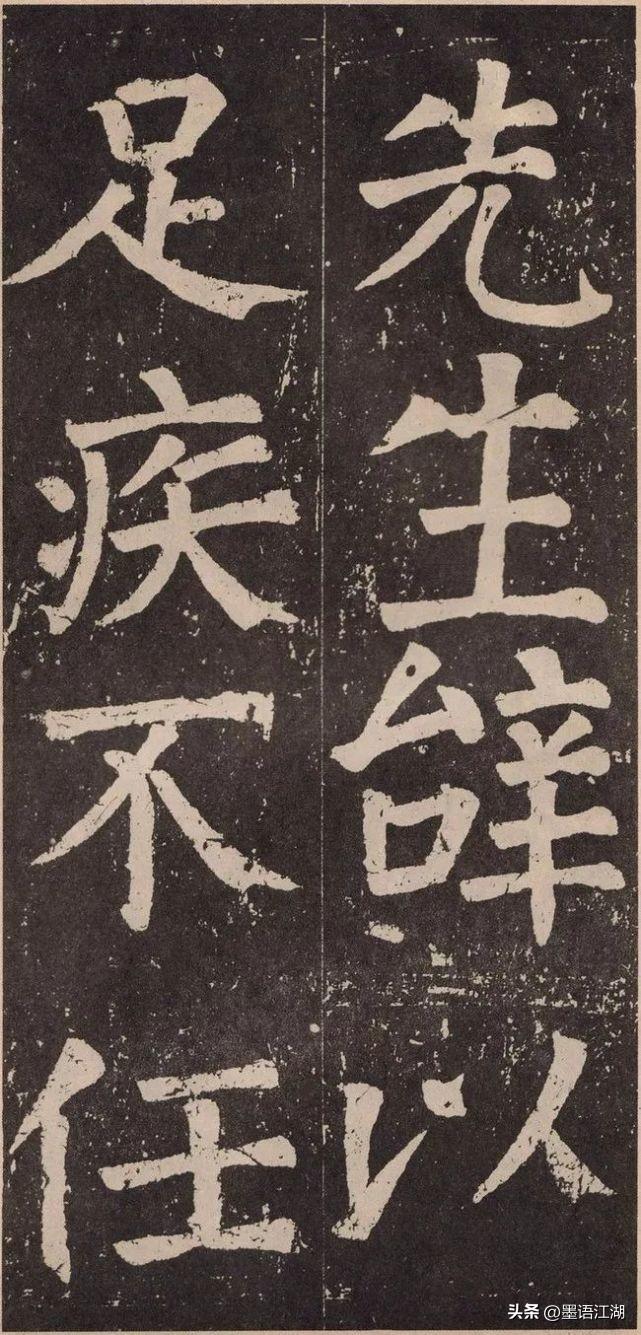 先生辝以
足疾不任
头条 @墨语江湖